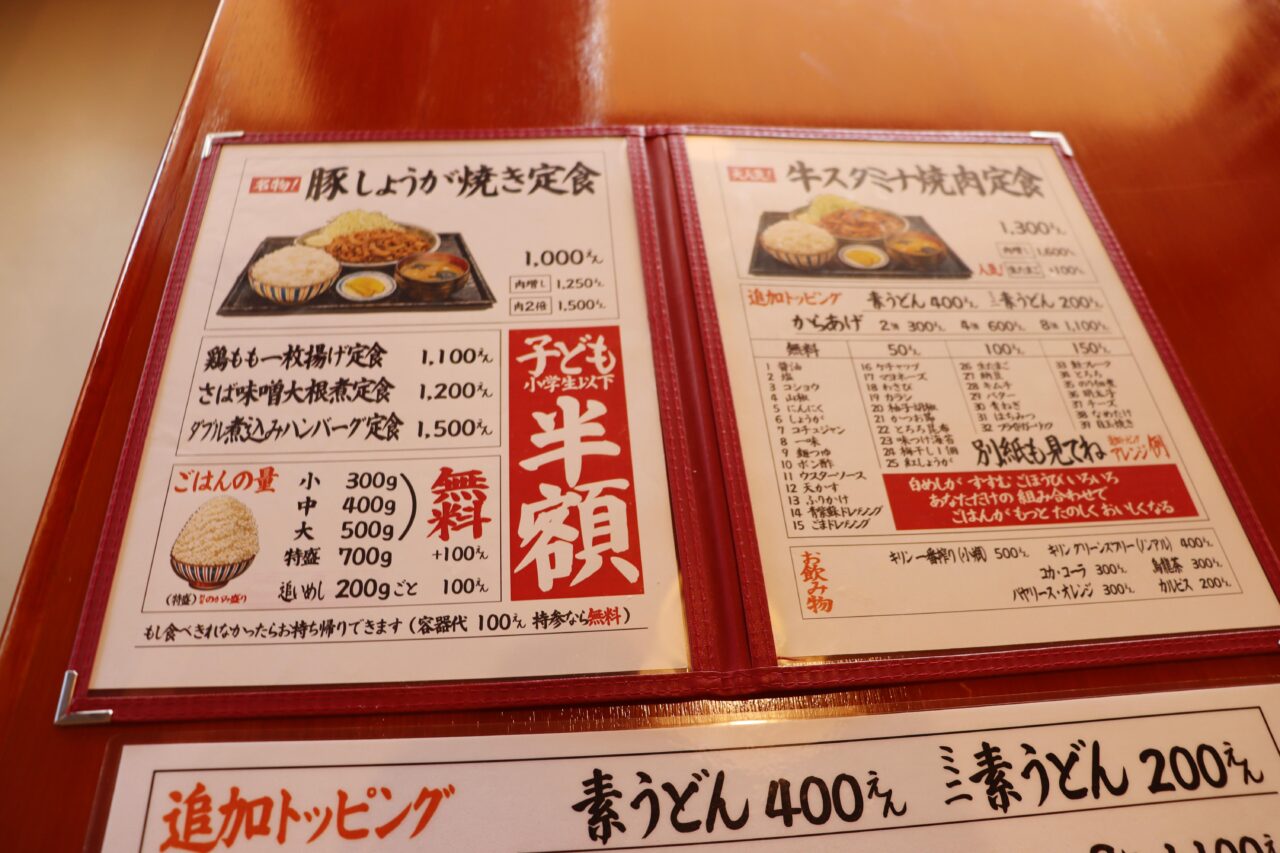 名物! 豚しょうが焼き定食
1,000えん
肉増し 1,250えん
肉2倍 1,500えん
鶏もも一枚揚げ定食 1,100えん
さば味噌大根煮定食 1,200えん
ダブル煮込みハンバーグ定食 1,500えん
子ども
小学生以下
半額
ごはんの量
小 300g
中 400g
大 500g
無料
特盛 700g +100えん
追いめし 200gごと 100えん
(特盛) のがみ盛り
もし食べきれなかったらお持ち帰りできます (容器代 100えん 持参なら無料)
大人気! 牛スタミナ焼肉定食
1,300えん
肉増し 1,600えん
人気! 生たまご +100えん
追加トッピング 素うどん 400えん ミニ素うどん 200えん
からあげ 2個 300えん 4個 600えん 8個 1,100えん
無料
1 醤油
2 塩
3 コショウ
4 山椒
5 にんにく
6 しょうが
7 コチュジャン
8 一味
9 麺つゆ
10 ポン酢
11 ウスターソース
12 天かす
13 ふりかけ
14 青紫蘇ドレッシング
15 ごまドレッシング
50えん
16 ケチャップ
17 マヨネーズ
18 わさび
19 カラシ
20 柚子胡椒
21 かつお節
22 とろろ昆布
23 味つけ海苔
24 梅干し1個
25 紅しょうが
100えん
26 生たまご
27 納豆
28 キムチ
29 バター
30 青ねぎ
31 はちみつ
32 フライドガーリック
150えん
33 鮭フレーク
34 とろろ
35 のり佃煮
36 明太子
37 チーズ
38 なめたけ
39 目玉焼き
別紙も見てね 追加トッピング アレンジ例
白めしが すすむ ごほうび いろいろ
あなただけの 組み合わせで
ごはんが もっと たのしく おいしくなる
お飲み物
キリン一番搾り(小瓶) 500えん
キリングリーンズフリー(ノンアル) 400えん
コカ・コーラ 300えん
烏龍茶 300えん
バヤリース・オレンジ 300えん
カルピス 200えん
追加トッピング 素うどん 400えん ミニ素うどん 200えん